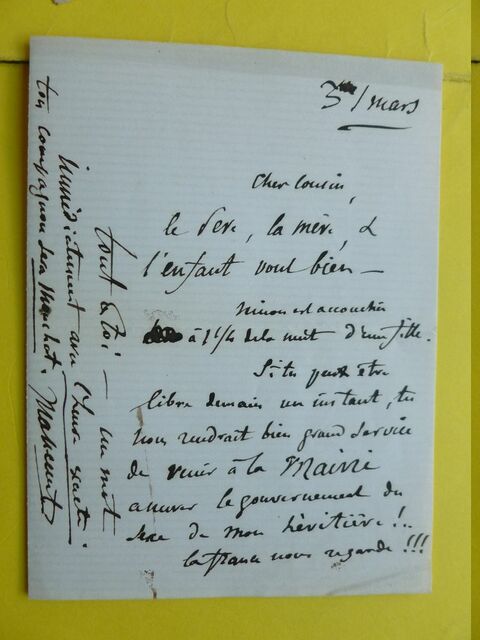 31 mars
Cher Cousin,
le Père, la mère, &
l'enfant vont bien —
Ninon est accouchée
à 1 1/4 de la nuit d'une fille.
Si tu peux être
libre demain un instant, tu
nous rendrait bien grand service
de venir à la Mairie
assurer le gouvernement du
sexe de mon héritière !..
la france nous regarde !!!
tout à toi — un mot
immédiatement avec l'heure exacte.
ton compagnon sera Marchot.